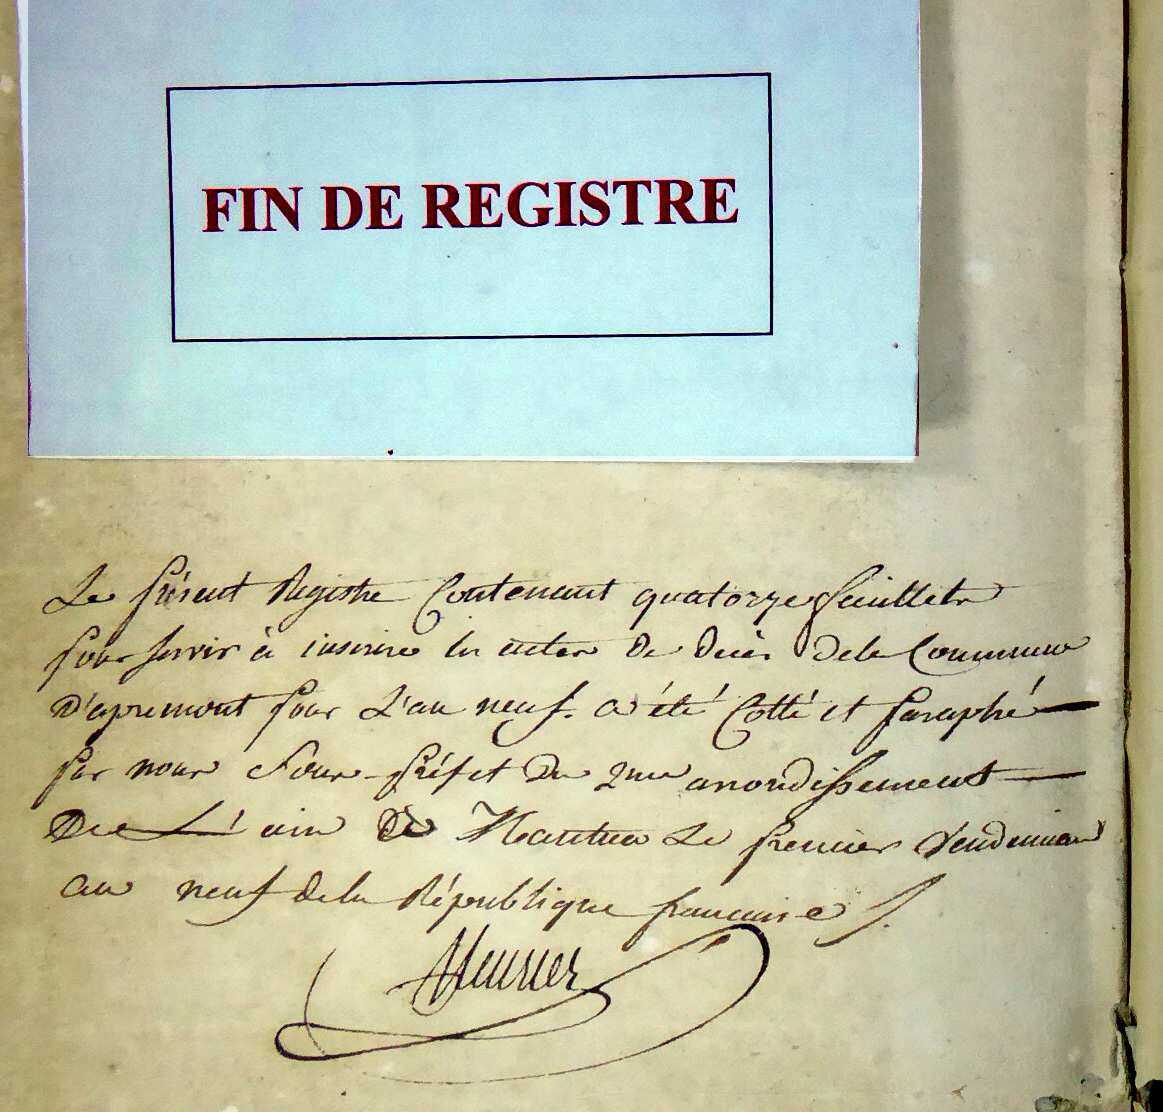 FIN DE REGISTRE
Le présent Registre Contenant quatorze feuillets
pour servir à inscrire les actes de décès de la Commune
D'apremont pour L'an neuf. a été Cotté et paraphé
par nous Sous-préfet du 2me arrondissement
De L'ain de Nantua Le premier Vendemiaire
an neuf de la République francaise